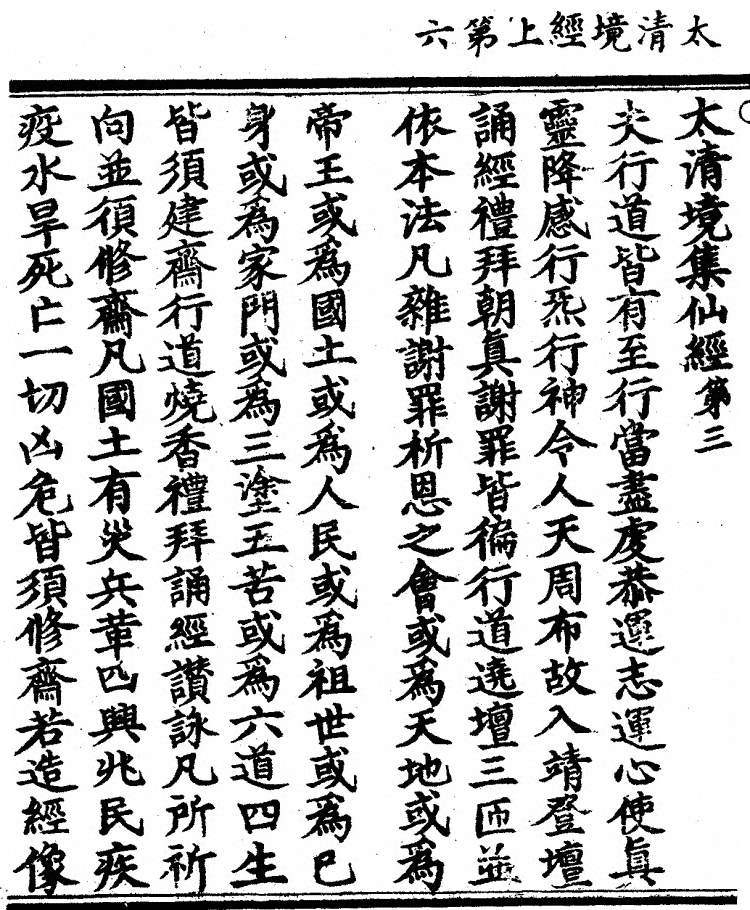 太清境經上第六
太清境集仙經第三
夫行道皆有至行當盡虔恭運志運心使眞
靈降感行炁行神令人天周布故入靖登壇
誦經禮拜朝眞謝罪皆徧行道遶壇三匝並
依本法凡雜謝罪祈恩之會或爲天地或爲
帝王或爲國土或爲人民或爲祖世或爲已
身或爲家門或爲三塗五苦或爲六道四生
皆須建齋行道燒香禮拜誦經讃詠凡所祈
向並須修齋凡國土有災兵革四興兆民疾
疫水旱死亡一切凶危皆須修齋若造經像